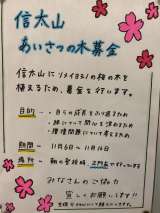 信太山
あいさつの木募金
信太山にソメイヨシノ桜の木を
植えるため、募金を行います。
目的
・自らの成長をふり返るため
・緑について関心を深めるため
・環境問題について考えるため
期間
11月6日〜11月16日
場所
朝の登校時、正門前で行っています
みなさんのご協力
宜しくお願いします!!